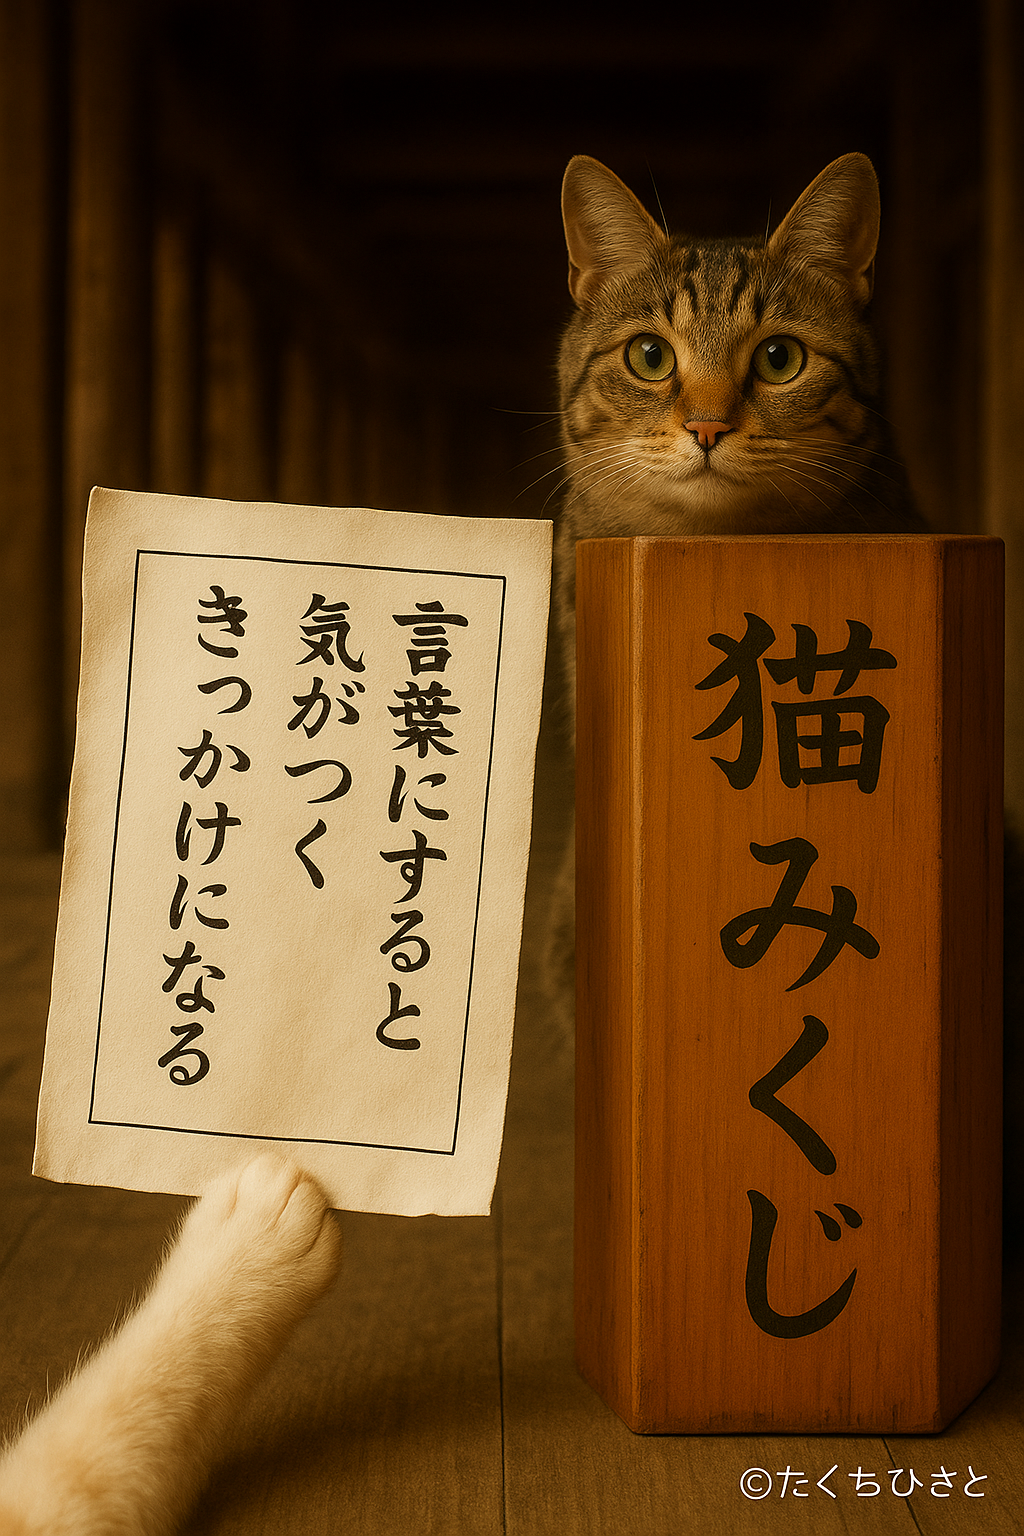 言葉にすると
気がつく
きっかけになる
猫みくじ
©たくちひさと